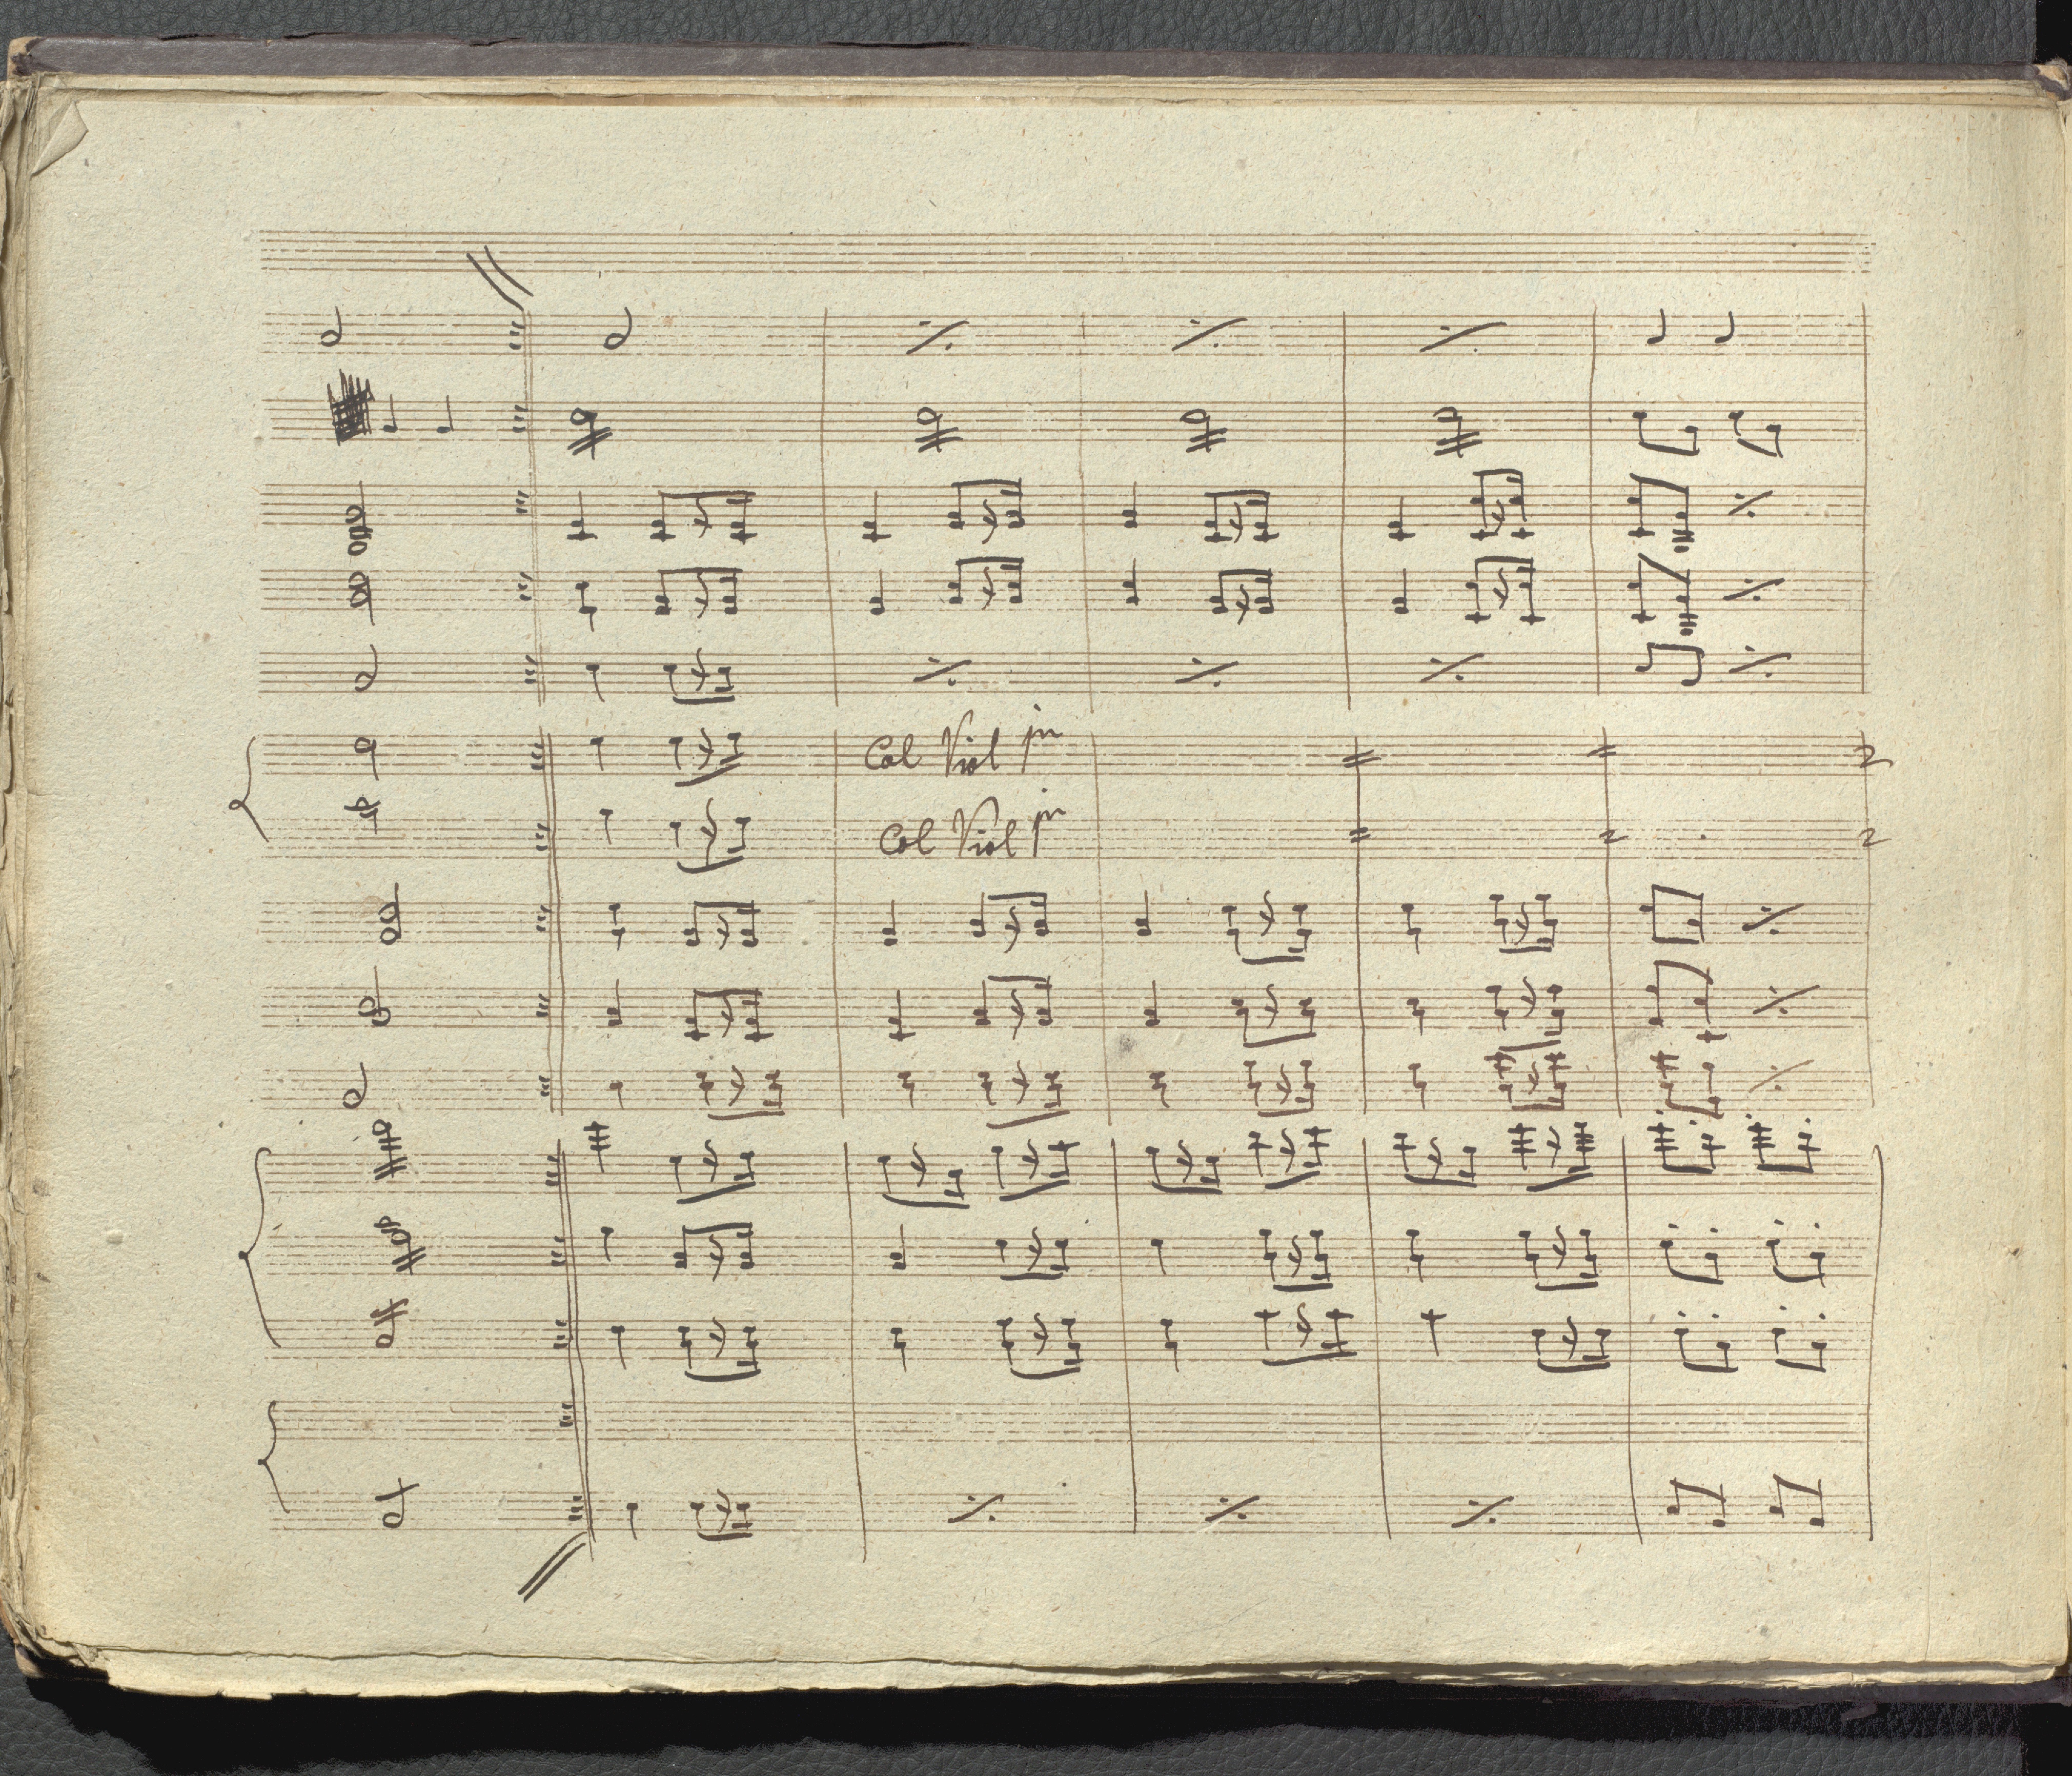 Col Viol pm
Col Viol pm